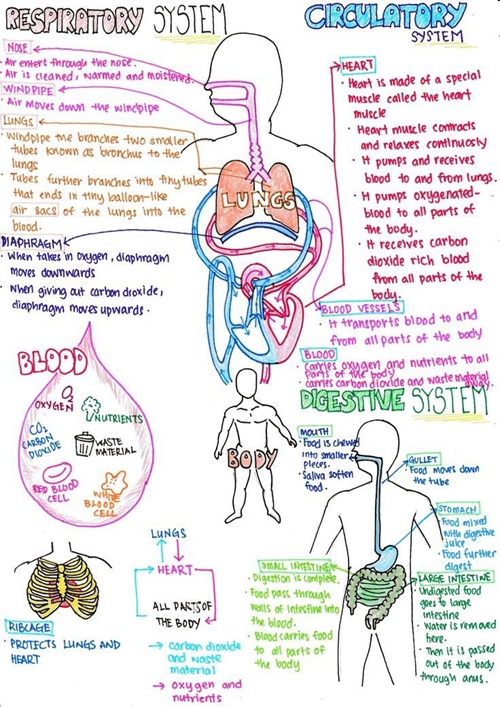 RESPIRATORY SYSTEM
NOSE
• Air enters through the nose.
• Air is cleaned, warmed and moistened.
WINDPIPE
• Air moves down the windpipe
LUNGS
• Windpipe the branches two smaller
tubes known as bronchus to the
lungs
• Tubes further branches into tiny tubes
that ends in tiny balloon-like
air sacs of the lungs into the
blood.
DIAPHRAGM
• When takes in oxygen, diaphragm
moves downwards
• When giving out carbon dioxide,
diaphragm moves upwards.
LUNGS
CIRCULATORY
SYSTEM
HEART
• Heart is made of a special
muscle called the heart
muscle
• Heart muscle contracts
and relaxes continuosly
• It pumps and receives
blood to and from lungs.
• It pumps oxygenated-
blood to all parts of
the body.
• It receives carbon
dioxide rich blood
from all parts of the
body.
BLOOD VESSELS
• It transports blood to and
from all parts of the body
BLOOD
• carries oxygen and nutrients to all
parts of the body
• carries carbon dioxide and waste material
away.
BLOOD
O2
OXYGEN
NUTRIENTS
CO2
CARBON
DIOXIDE
WASTE
MATERIAL
RED BLOOD
CELL
WHITE
BLOOD
CELL
BODY
RIBCAGE
• PROTECTS LUNGS AND
HEART
LUNGS
HEART
ALL PARTS OF
THE BODY
→ carbon dioxide
and waste
material
→ oxygen and
nutrients
DIGESTIVE SYSTEM
MOUTH
• Food is chewed
into smaller
pieces.
• Saliva soften
food.
GULLET
• Food moves down
the tube
STOMACH
• Food mixed
with digestive
juice
• Food further
digest
SMALL INTESTINE
• Digestion is complete.
• Food pass through
walls of intestine into
the blood.
• Blood carries food
to all parts of
the body
LARGE INTESTINE
• Undigested food
goes to large
intestine
• Water is removed
here.
• Then it is passed
out of the body
through anus.